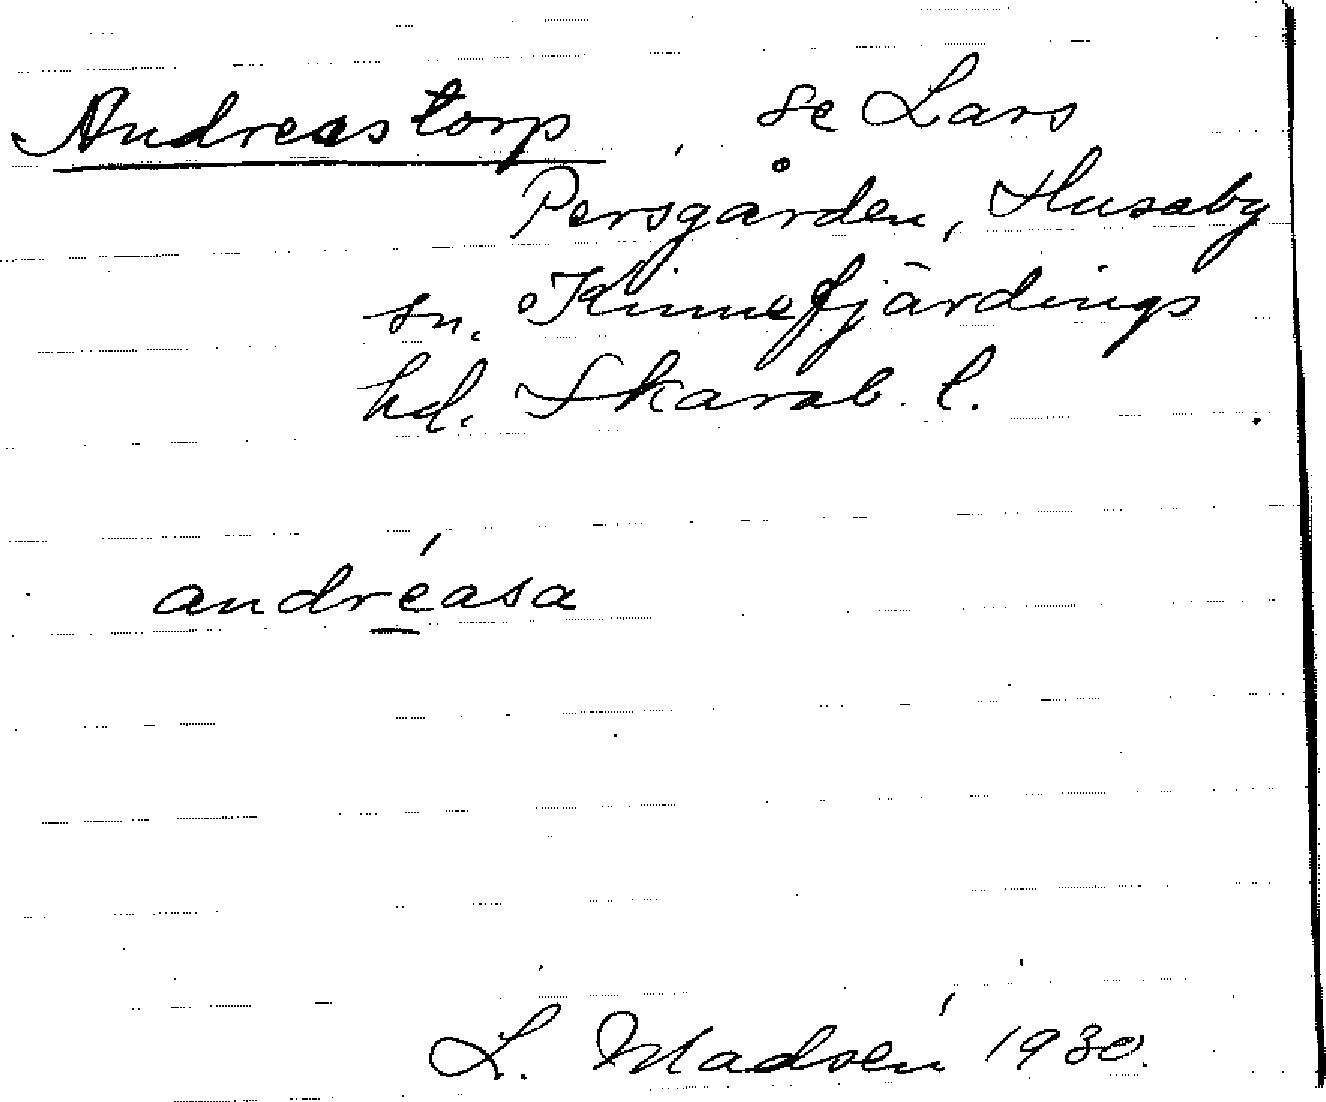 Andreastorp, se Lars
Persgården, Husaby
sn. Kinnefjärdings
hd. Skarab. l.
andréasa
L. Madsén 1930.